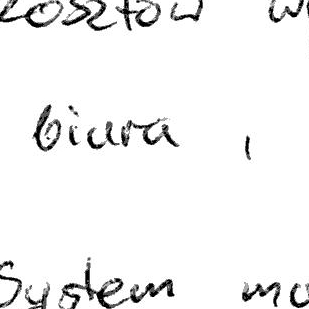 kosztów w
biura ,
System mo